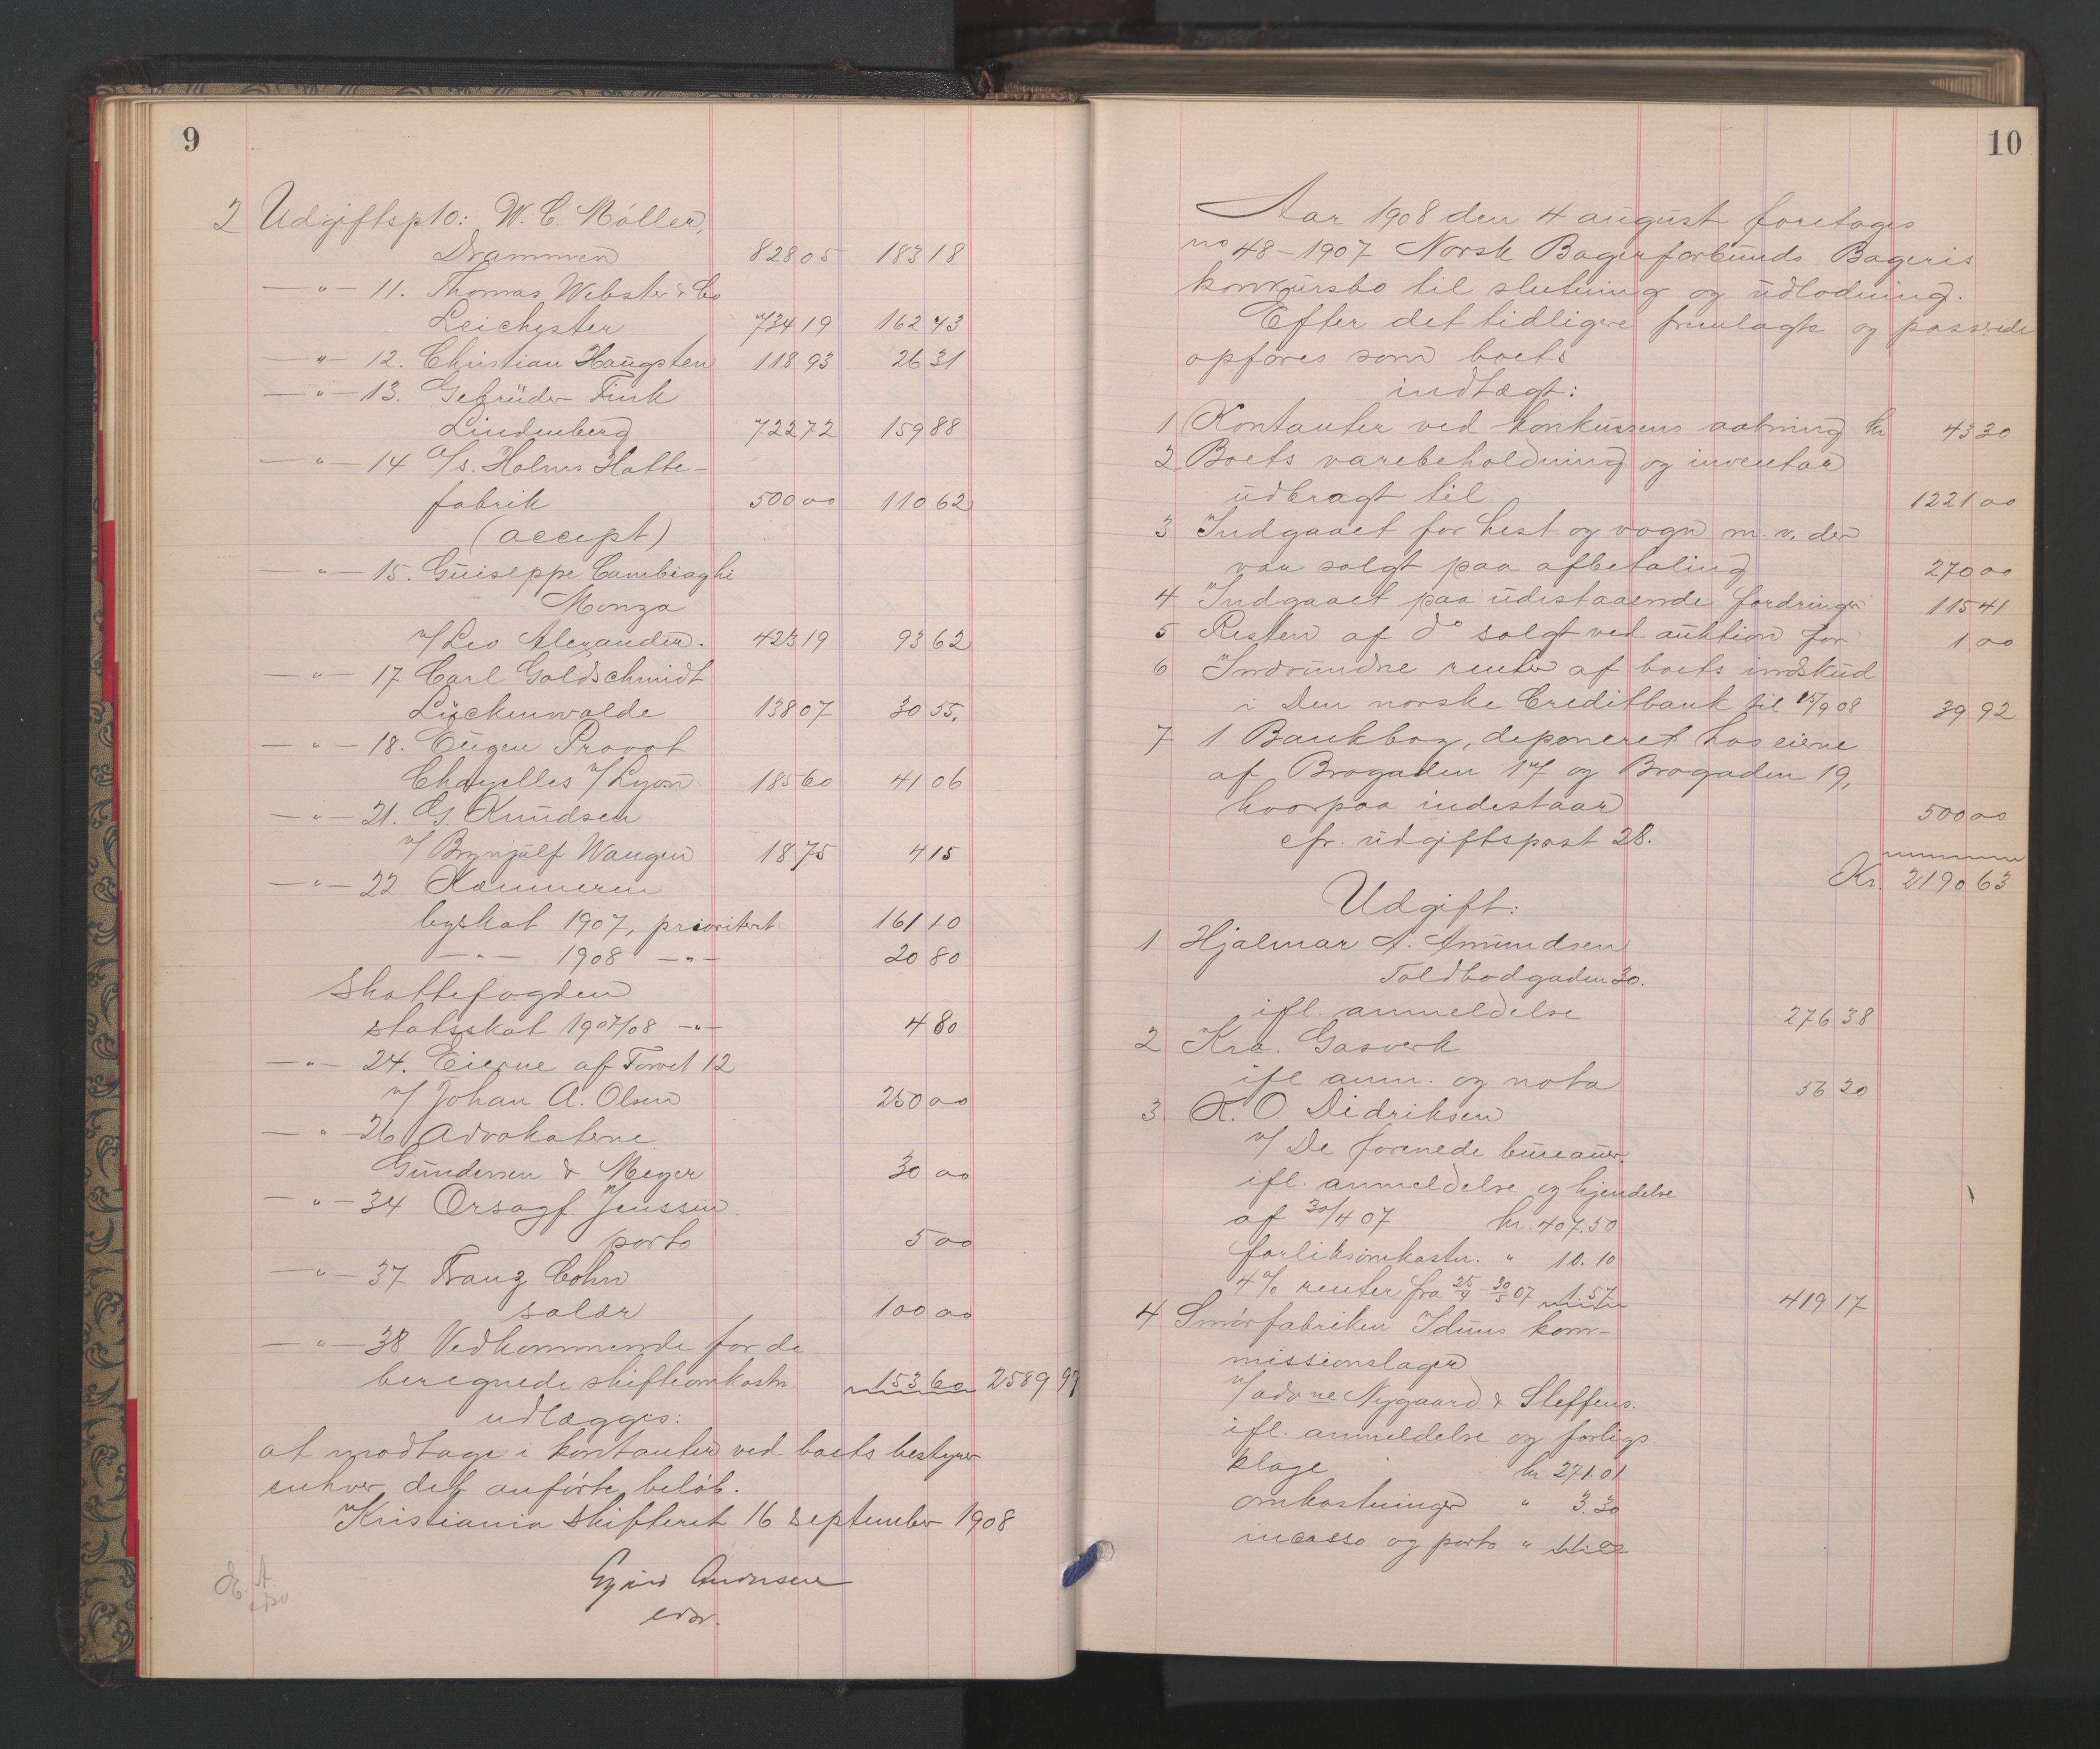 9
2 Udgiftsp 10: W. C. Möller,
Drammen 828 05 183 18
— " — 11. Thomas Webster & Co
Leichester 734 19 162 43
— " — 12. Christian Haugsten 118 93 26 31
— " — 13. Gebrüder Fink
Lindenberg 722 72 159 88
— " — 14 A/s. Holms Hatte-
fabrik 500 00 110 62
(accept)
— " — 15. Guiseppe Cambiaghi
Monza
v/ Leo Alexander. 423 19 93 62
— " — 17 Carl Goldschmidt
Lückenwalde 138 07 30 55.
— " — 18. Eugen Provot
Chazelles v/ Lyon 185 60 41 06
— " — 21. G. Knudsen
v/ Brynjulf Wangen 18 75 4 15
— " — 22 Kæmneren
byskat 1907, prioritert 161 10
— " — 1908 — " — 20 80
Skattefogden
statsskat 1907/08 — " — 4 80
— " — 24. Eierne af Torvet 12
v/ Johan A. Olsen 250 00
— " — 26 Advokaterne
Gundersen & Meyer 30 00
— " — 34 Orsagf. Jenssen.
porto 5 00
— " — 37 Franz Cohn
salær 100 00
— " — 38 Vedkommende for de
beregnede skifteomkostn. 153 60 2589 97
udlægges:
at modtage i kontanter ved boets bestyrer
enhver det anførte beløb.
Kristiania skifteret 16 september 1908
10
Aar 1908 den 4 august foretages
no 48-1907 Norsk Bagerforbunds Bageris
konkursbo til slutning og udlodning.
Efter det tidligere fremlagte og passerede
opføres som boets
indtægt:
1 Kontanter ved konkursens aabning kr 43 30
2 Boets varebeholdning og inventar
udbragt til 1221 00
3 Indgaaet for hest og vogn m. v. der
var solgt paa afbetaling 270 00
4 Indgaaet paa udestaaende fordringer 115 41
5 Resten af do solgt ved auktion for 1 00
6 Indvundne renter af boets indskud
i Den norske Creditbank til 15/9 08 39 92
7 1 Bankbog, deponeret hos eierne
af Brogaden 17 og Brogaden 19,
hvorpaa indestaar 500 00
cfr. udgiftspost 28.
Kr. 2190 63
Udgift:
1 Hjalmar A. Amundsen
Toldbodgaden 30.
ifl. anmeldelse 276 38
2 Kra. Gasverk
ifl anm. og nota 56 20
3 K. O. Didriksen
v/ De forenede bureauer.
ifl. anmeldelse og kjendelse
af 30/4 07 kr. 407.50
forliksomkostn. " 10.10
4% renter fra 25/4 - 30/5 07 1.57 419 17
4 Smørfabriken Iduns kom-
missionslager
v/ adv ne Nygaard & Steffens.
ifl. anmeldelse og forligs
klage kr. 271.01
omkostninger " 3.30
incasso og porto "